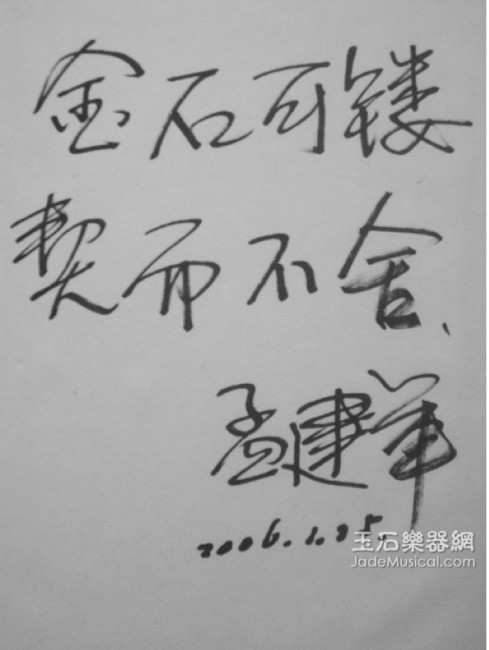 金石可镂
契而不舍、
孟建军
2006.1.25.
玉石樂器網
JadeMusical.com